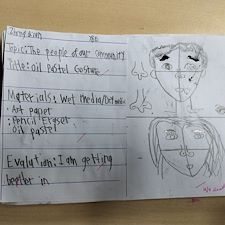 Topic: The people of our community
Title: Oil Pastel Gesture
Materials: Wet media/Dry media
• Art paper
• Pencil Eraser
Oil pastel
Evalution: I am getting
better in